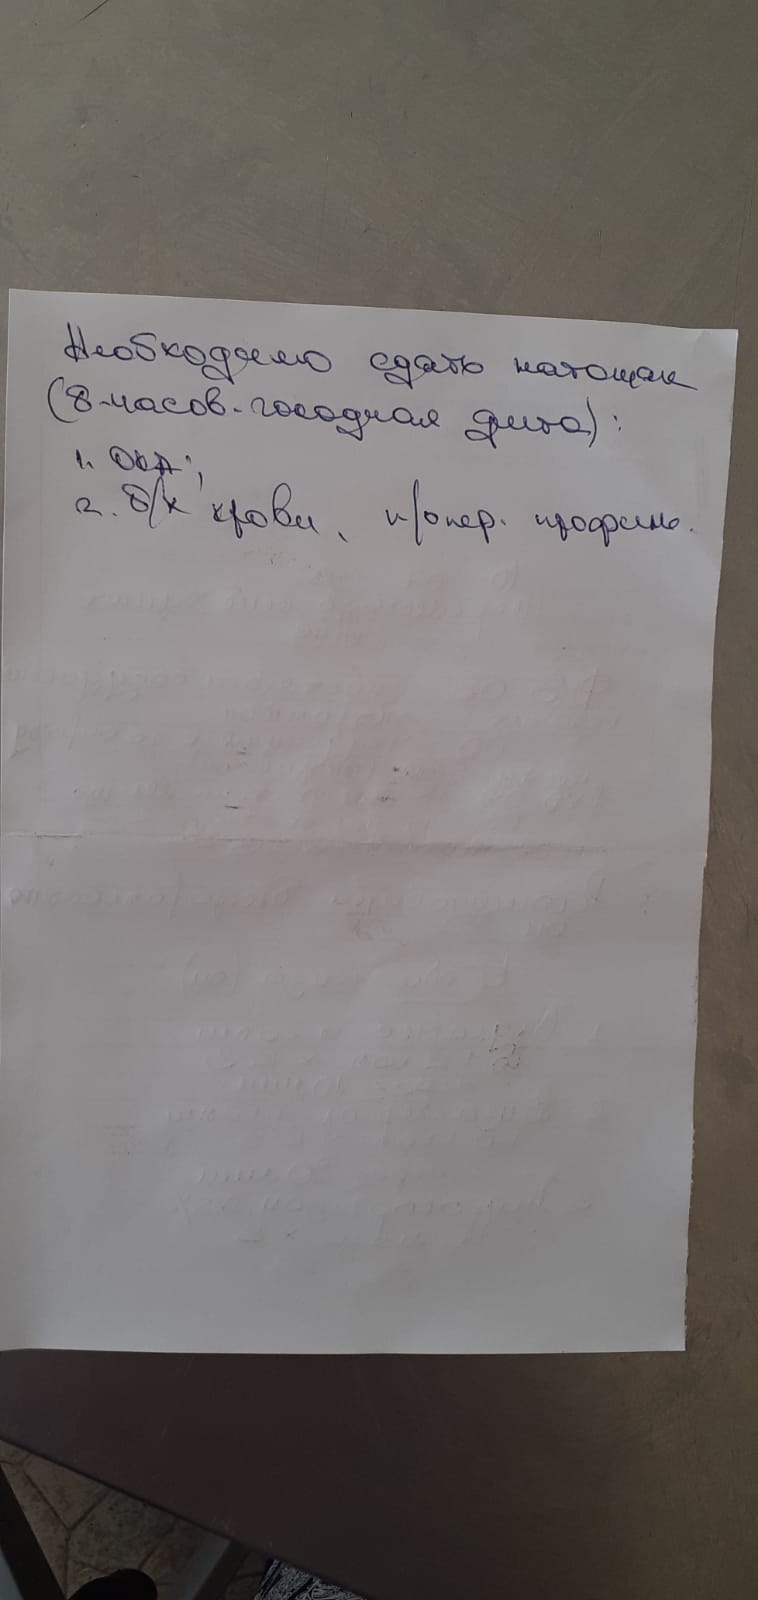 Необходимо сдать натощак
(8 часов - голодная диета):
1. ОКА;
2. б/х крови, п/опер. профиль.